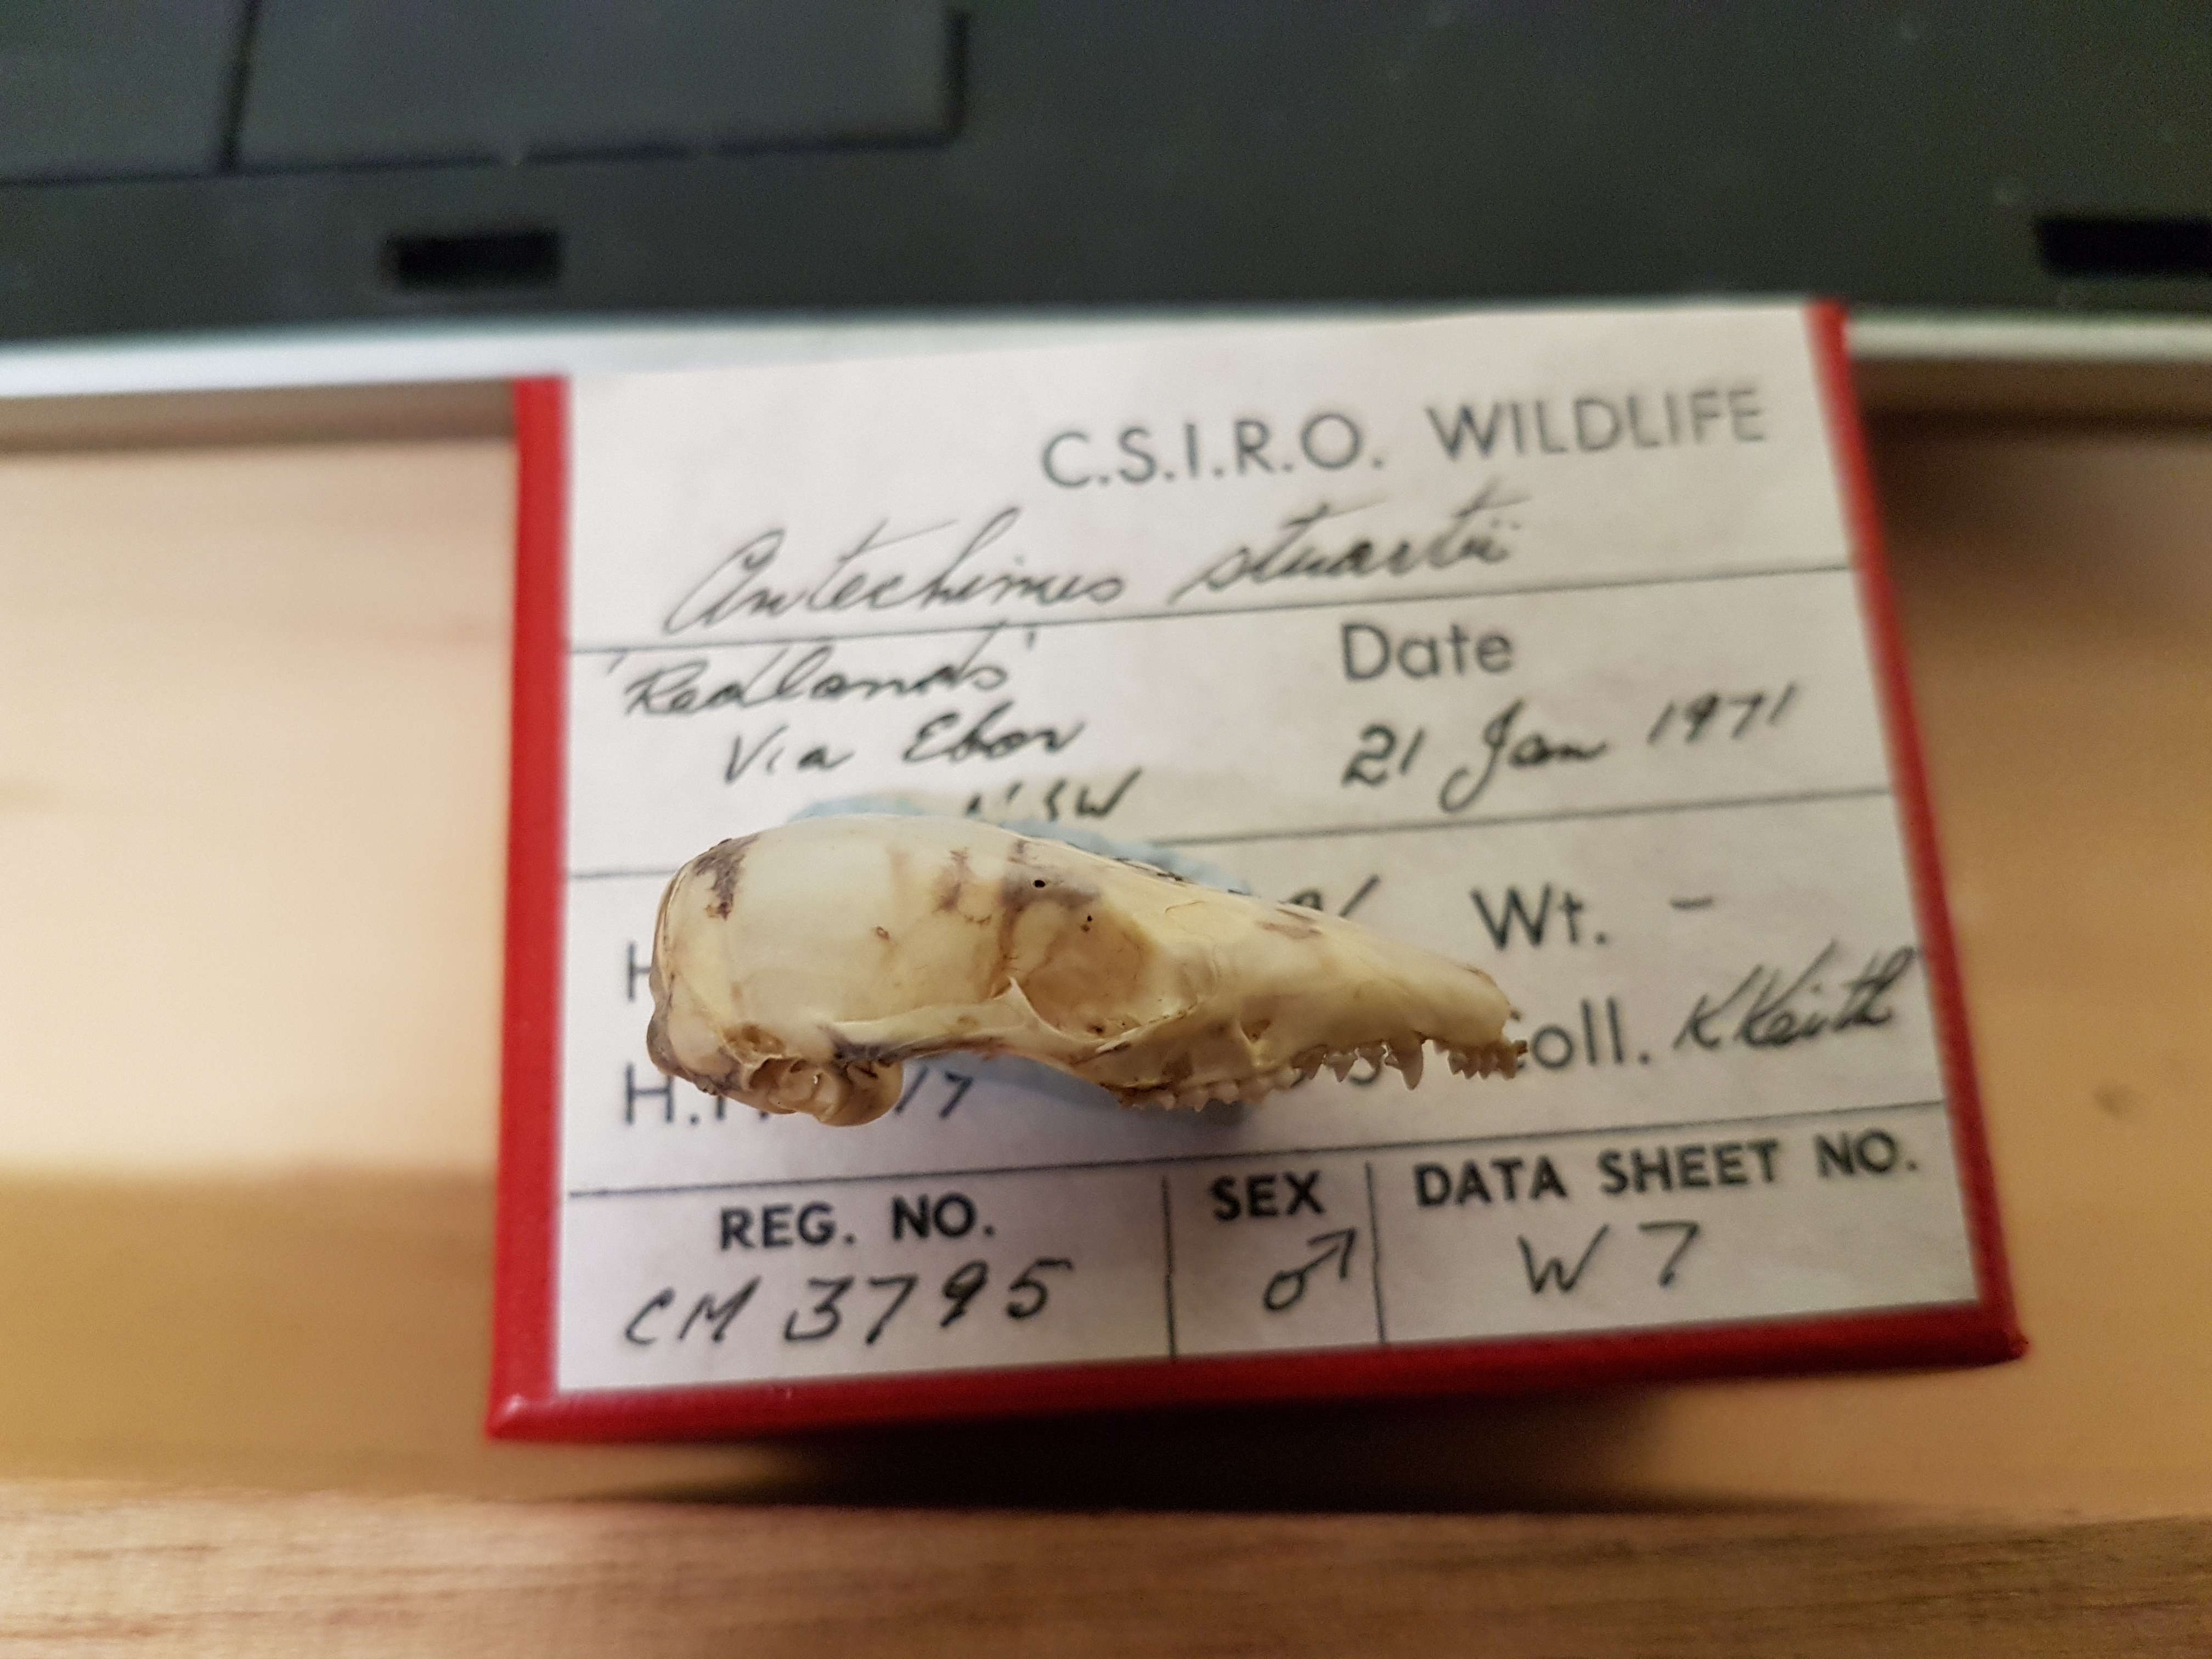 C.S.I.R.O. WILDLIFE
Antechinus stuartii
'Redlands'
Date
Via Ebor
21 Jan 1971
NSW
Wt. -
Coll. K Keith
17
REG. NO.
SEX
DATA SHEET NO.
CM 3795
♂
W 7